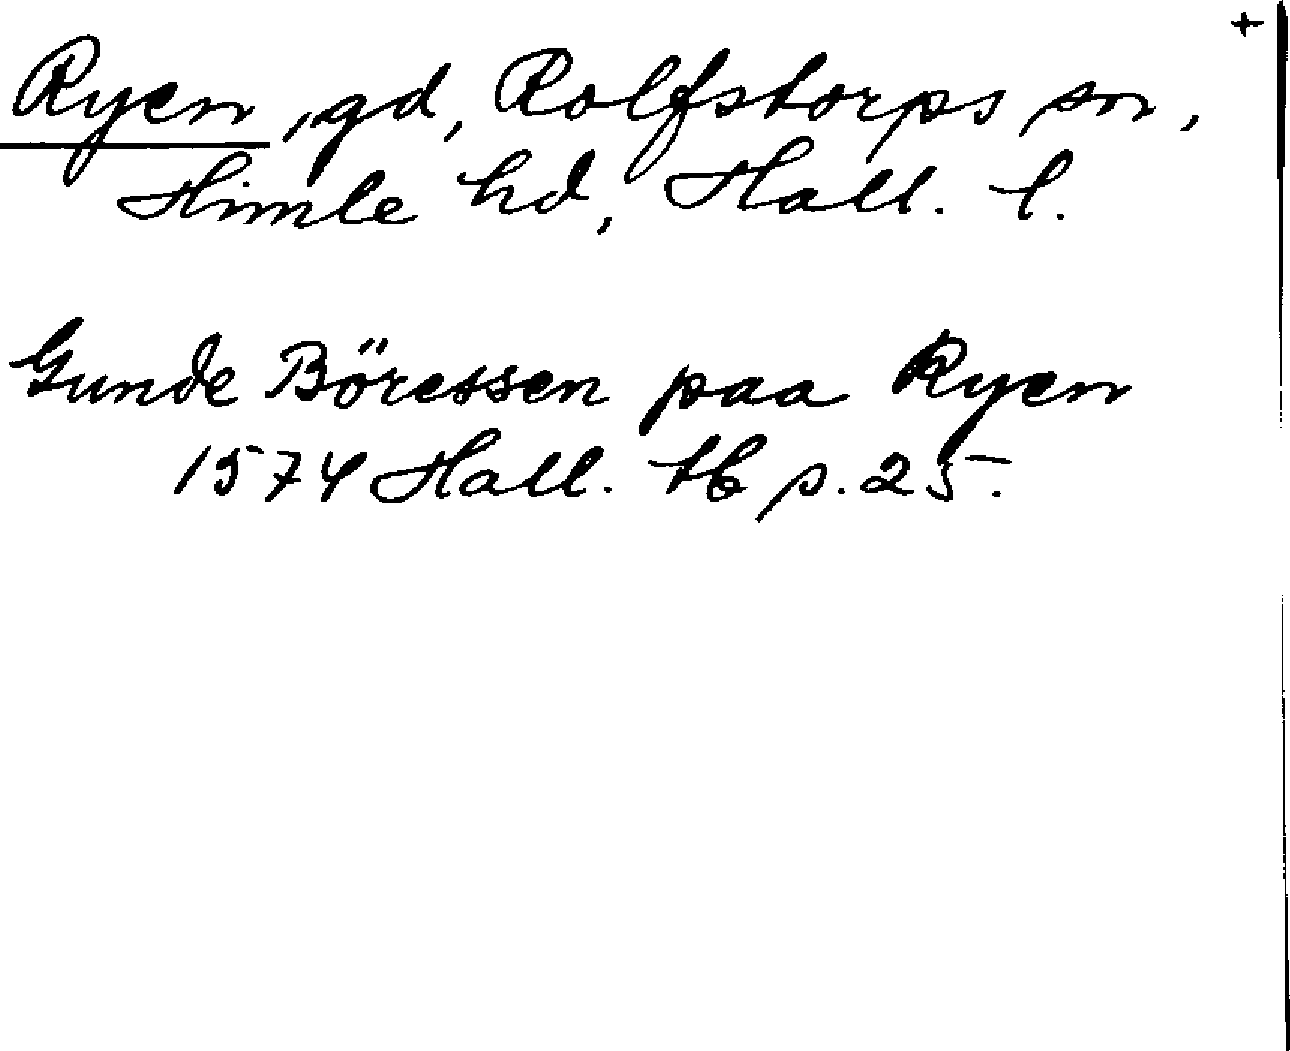 +
Ryen, gd, Rolfstorps sn,
Himle hd, Hall. l.
Gunde Böressen paa Ryen
1574 Hall. tb p. 25.